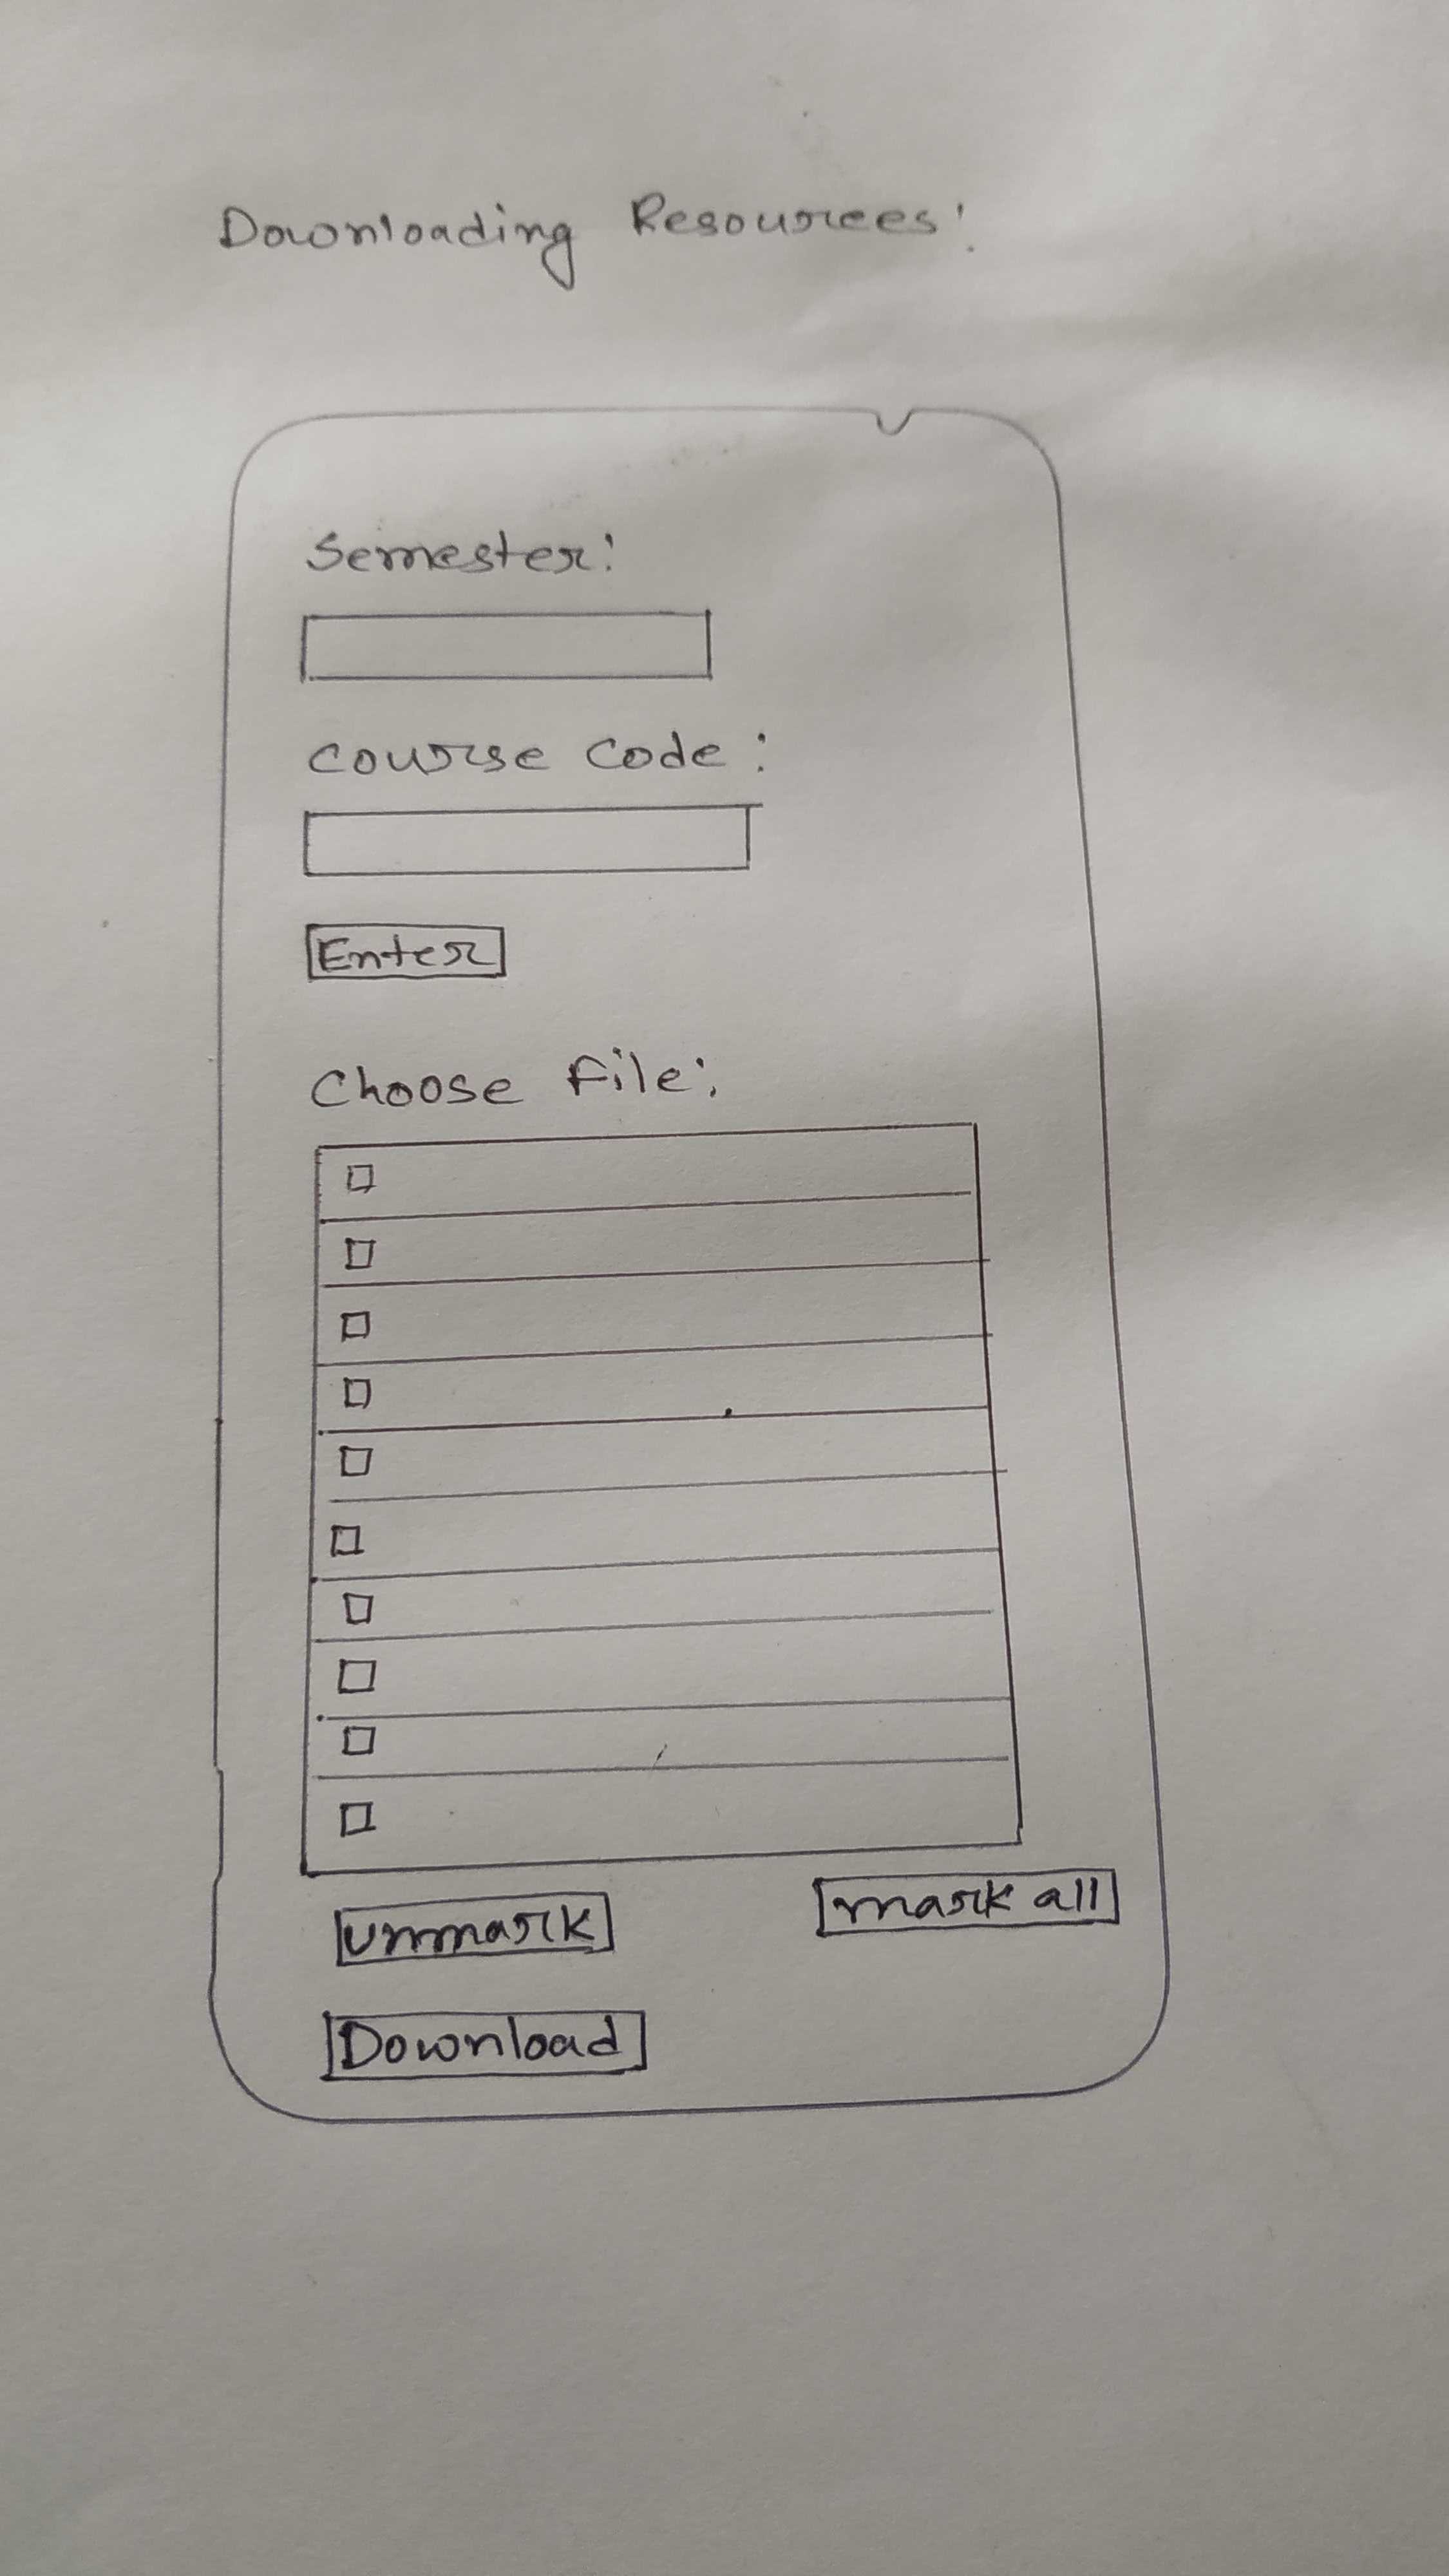 Downloading Resources:
Semester:
Course Code:
Enter
Choose File:
unmark
mark all
Download